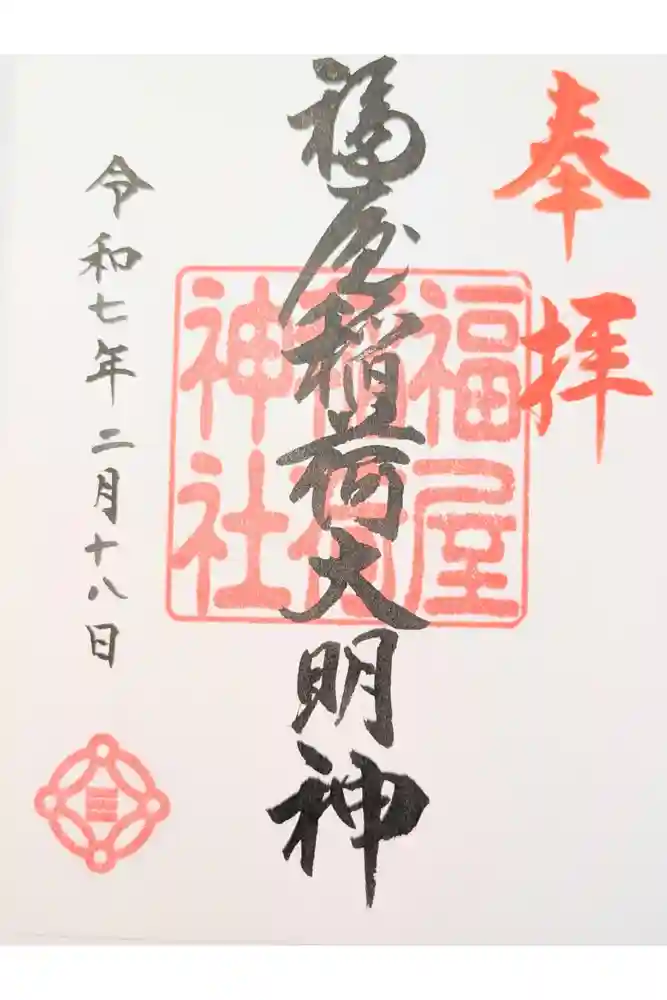 奉拝
福屋稲荷大明神
福屋
稲荷
神社
令和七年二月十八日
三